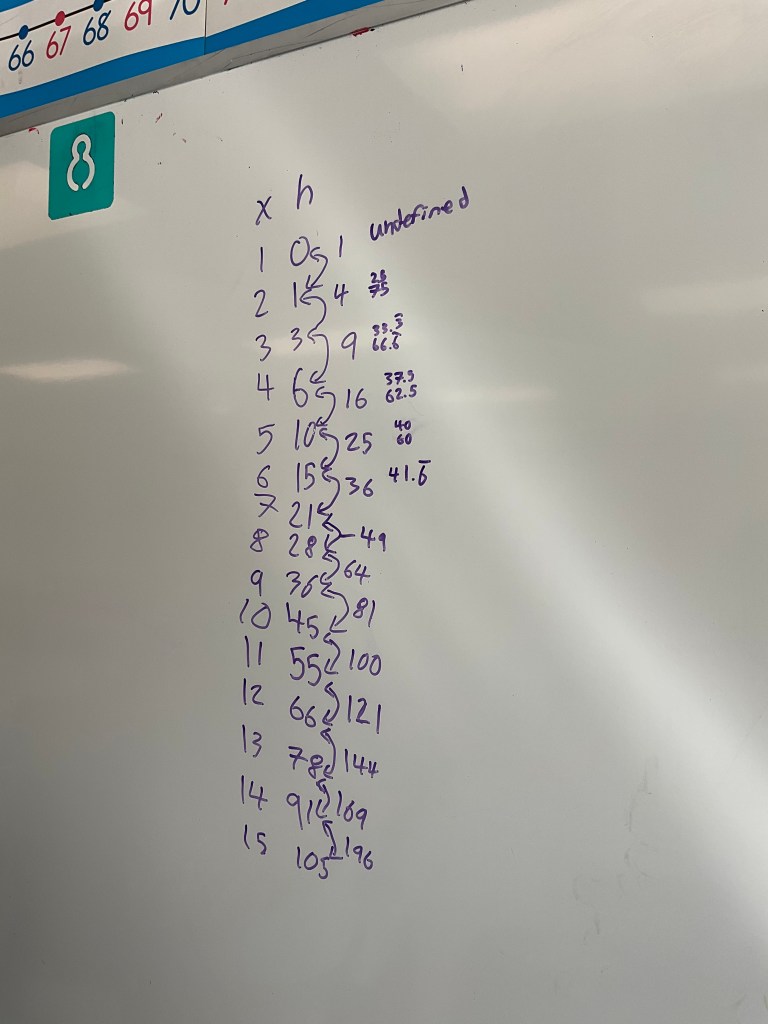 66 67 68 69 70
8
x h
1 0 1 undefined
2 1 4 25
75
3 3 9 33.3̅
66.6̅
4 6 16 37.5
62.5
5 10 25 40
60
6 15 36 41.6̅
7 21
8 28 49
9 36 64
10 45 81
11 55 100
12 66 121
13 78 144
14 91 169
15 105 196